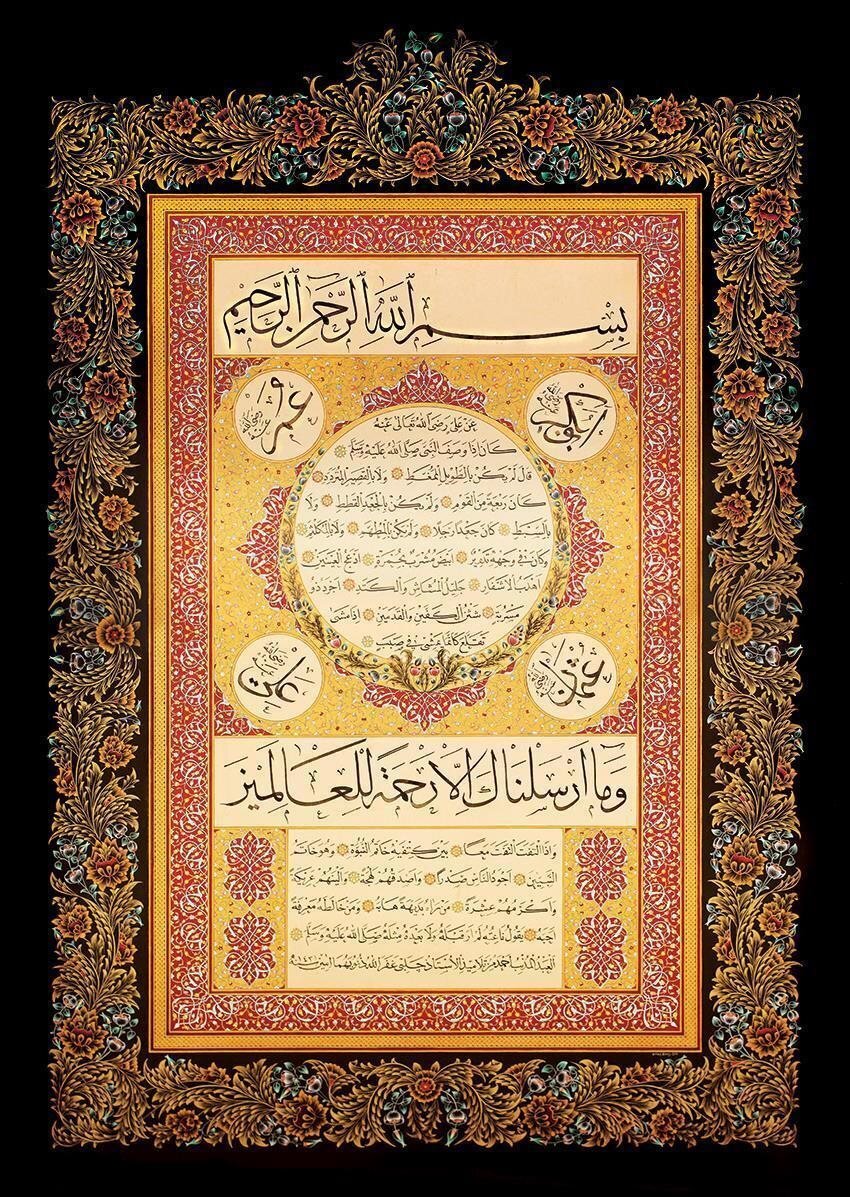 بِسْمِ ٱللَّهِ ٱلرَّحْمٰنِ ٱلرَّحِيمِ
ابوبكر رضي الله عنه
عمر رضي الله عنه
عَنْ عَلِىٍّ رَضِىَ اللهُ تَعَالٰى عَنْهُ
كَانَ اِذَا وَصَفَ النَّبِىَّ صَلَّى اللهُ عَلَيْهِ وَسَلَّمَ
قَالَ لَمْ يَكُنْ بِالطَّوِيلِ الْمُمَّغِطِ وَلَا بِالْقَصِيرِ الْمُتَرَدِّدِ
كَانَ رَبْعَةً مِنَ الْقَوْمِ وَلَمْ يَكُنْ بِالْجَعْدِ الْقَطَطِ وَلَا
بِالسَّبِطِ كَانَ جَعْدًا رَجِلًا وَلَمْ يَكُنْ بِالْمُطَهَّمِ وَلَا بِالْمُكَلْثَمِ
وَكَانَ فِى وَجْهِهِ تَدْوِيرٌ اَبْيَضُ مُشْرَبٌ بِحُمْرَةٍ اَدْعَجُ الْعَيْنَيْنِ
اَهْدَبُ الْاَشْفَارِ جَلِيلُ الْمُشَاشِ وَالْكَتَدِ اَجْرَدُ ذُو
مَسْرُبَةٍ شَثْنُ الْكَفَّيْنِ وَالْقَدَمَيْنِ اِذَا مَشٰى
تَقَلَّعَ كَاَنَّمَا يَمْشِى فِى صَبَبٍ
عثمان رضي الله عنه
على رضي الله عنه
وَمَا اَرْسَلْنَاكَ اِلَّا رَحْمَةً لِلْعَالَمِينَ
وَاِذَا الْتَفَتَ الْتَفَتَ مَعًا بَيْنَ كَتِفَيْهِ خَاتَمُ النُّبُوَّةِ وَهُوَ خَاتَمُ
النَّبِيِّينَ اَجْوَدُ النَّاسِ صَدْرًا وَاَصْدَقُهُمْ لَهْجَةً وَاَلْيَنُهُمْ عَرِيكَةً
وَاَكْرَمُهُمْ عِشْرَةً مَنْ رَاٰهُ بَدِيهَةً هَابَهُ وَمَنْ خَالَطَهُ مَعْرِفَةً
اَحَبَّهُ يَقُولُ نَاعِتُهُ لَمْ اَرَ قَبْلَهُ وَلَا بَعْدَهُ مِثْلَهُ صَلَّى اللهُ عَلَيْهِ وَسَلَّمَ
من تلاميذ الاستاذ چلبى غفر الله ذنوبهما امين